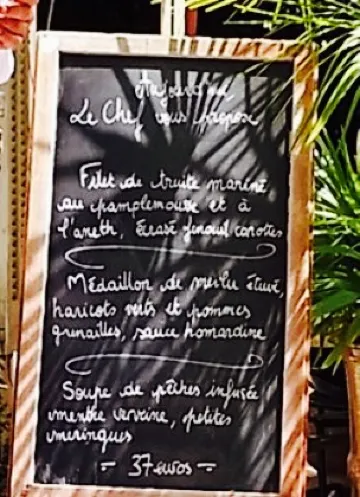 Aujourd'hui,
Le Chef vous propose
Filet de truite mariné
au pamplemousse et à
l'aneth, Écrasé fenouil carottes
Médaillon de merlu étuvé,
haricots verts et pommes
grenailles, sauce homardine
Soupe de pêches infusée
menthe verveine, petites
meringues
- 37 euros -